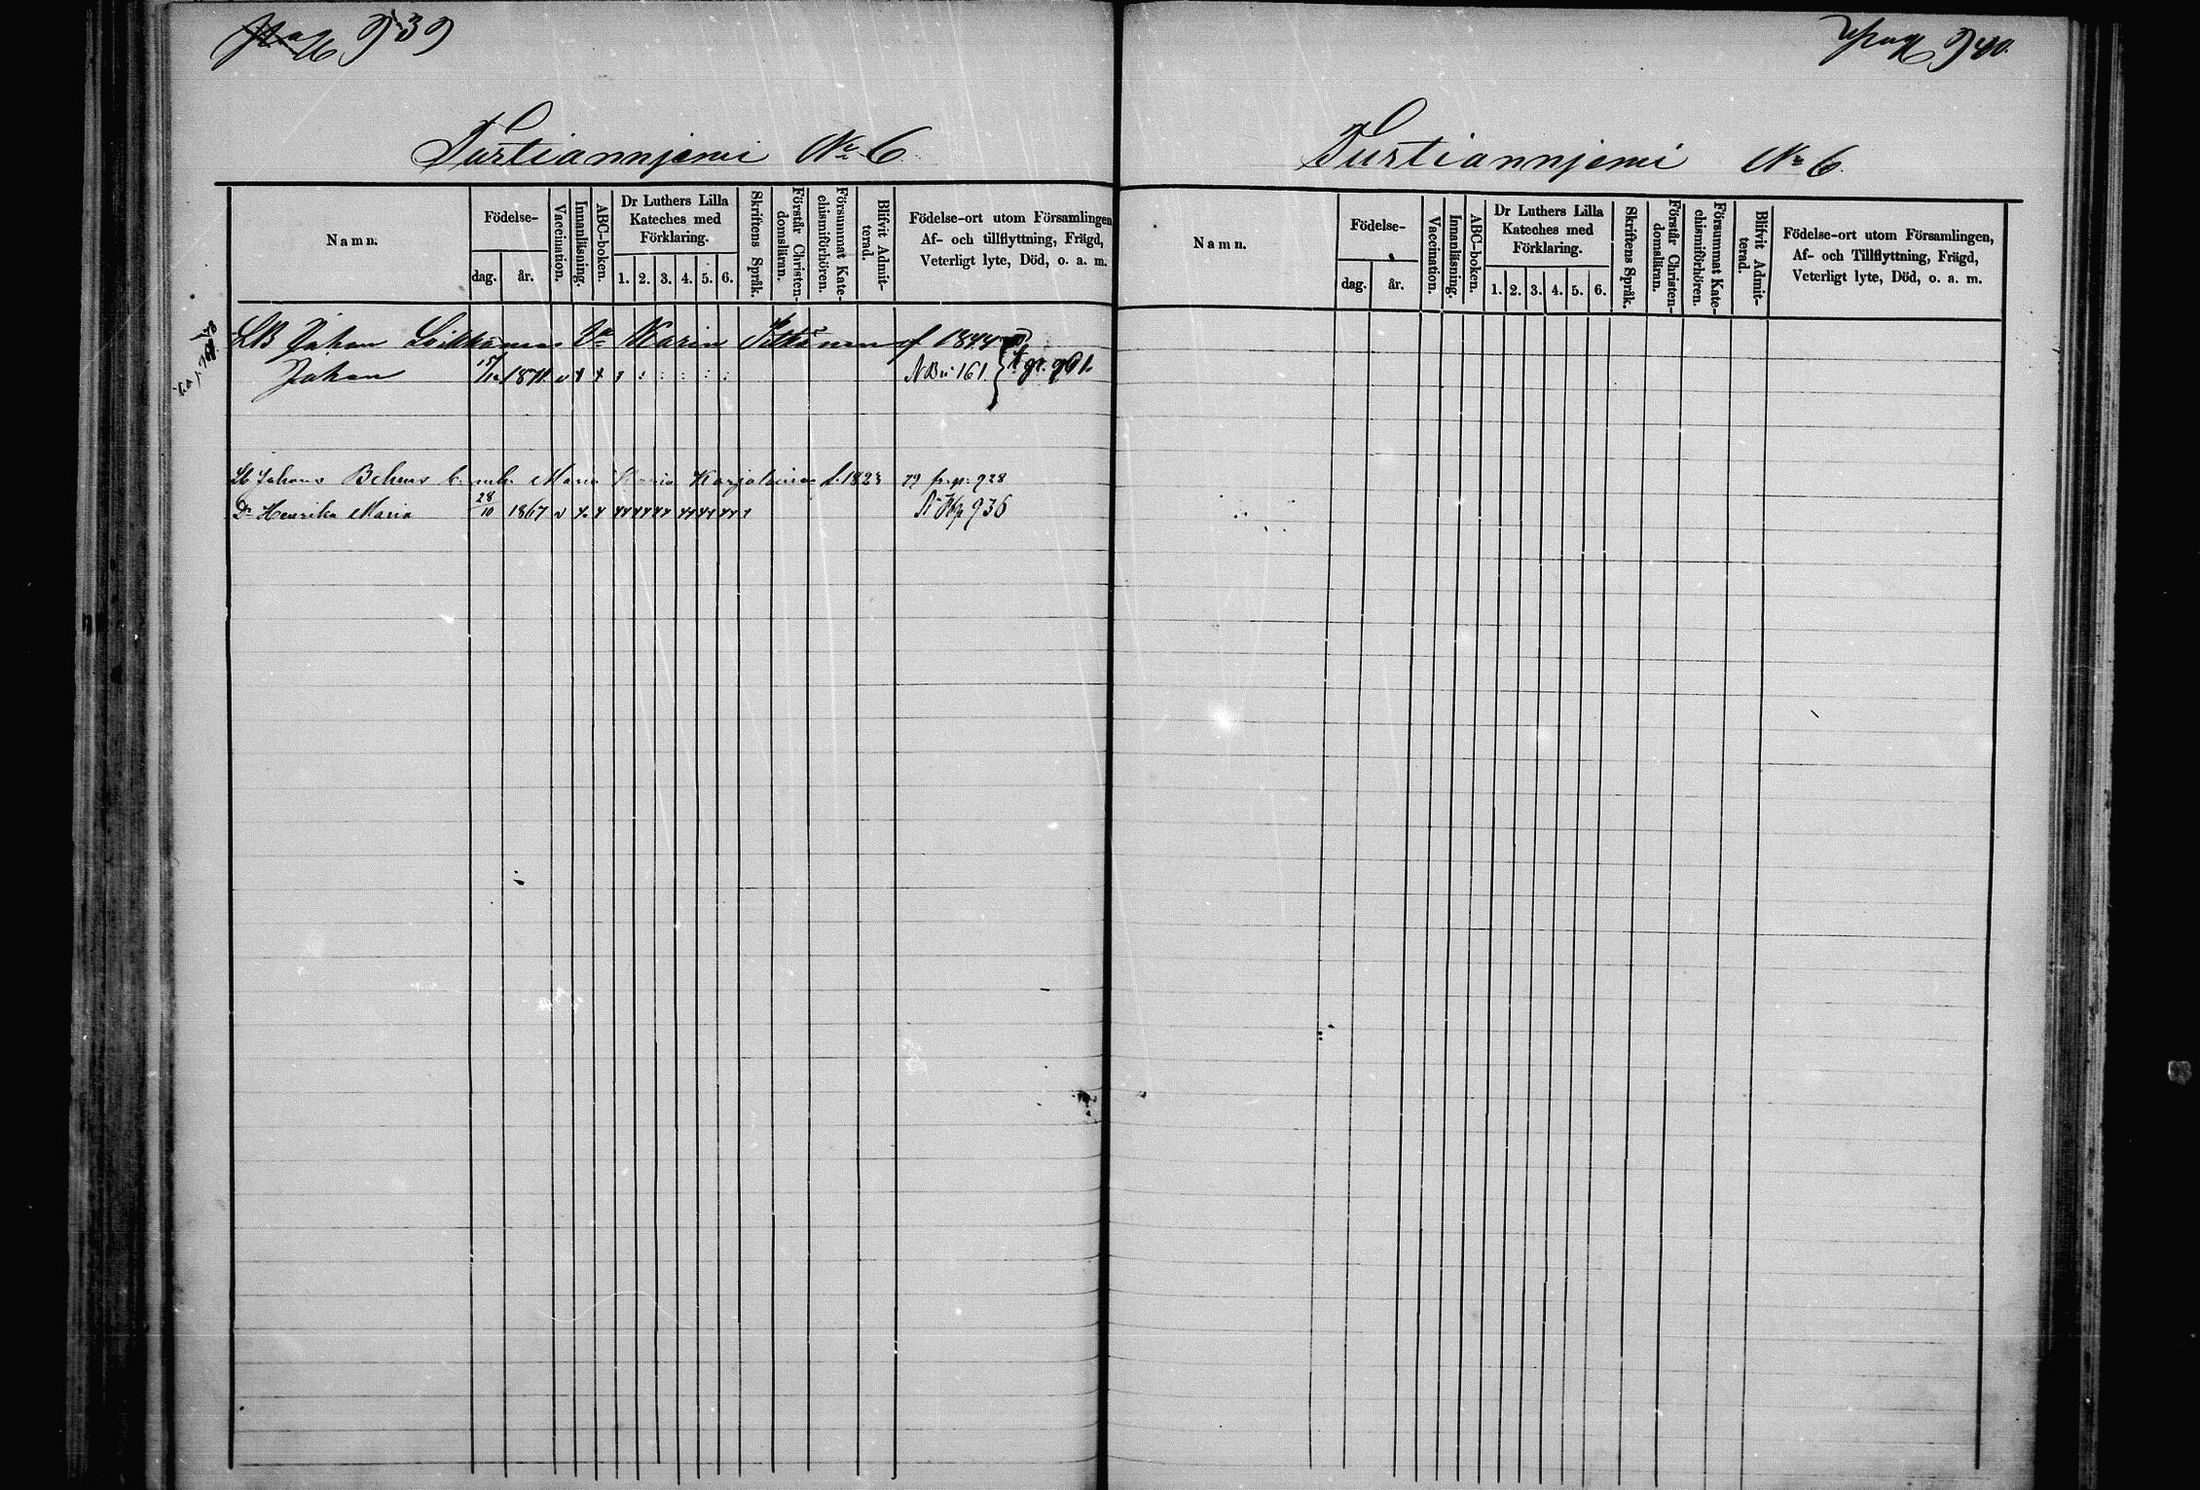 939
Turtianniemi No 6
Namn.
Födelse-
dag.
år.
Vaccination.
Innanläsning.
ABC-boken.
Dr Luthers Lilla
Kateches med
Förklaring.
1. 2. 3. 4. 5. 6.
Skriftens Språk.
Förstår Christen-
domsläran.
Försummat Kate-
chismiförhören.
Blifvit Admit-
terad.
Födelse-ort utom Församlingen
Af- och tillflyttning, Frägd,
Veterligt lyte, Död, o. a. m.
Johan Maria f 1844
Johan 1871 161 961
Johans Maria Karjalainen f. 1823 79 fr. p. 928
Dr Henrika Maria 28/10 1867 936
940.
Turtianniemi No 6
Namn.
Födelse-
dag.
år.
Vaccination.
Innanläsning.
ABC-boken.
Dr Luthers Lilla
Kateches med
Förklaring.
1. 2. 3. 4. 5. 6.
Skriftens Språk.
Förstår Christen-
domsläran.
Försummat Kate-
chismiförhören.
Blifvit Admit-
terad.
Födelse-ort utom Församlingen,
Af- och Tillflyttning, Frägd,
Veterligt lyte, Död, o. a. m.